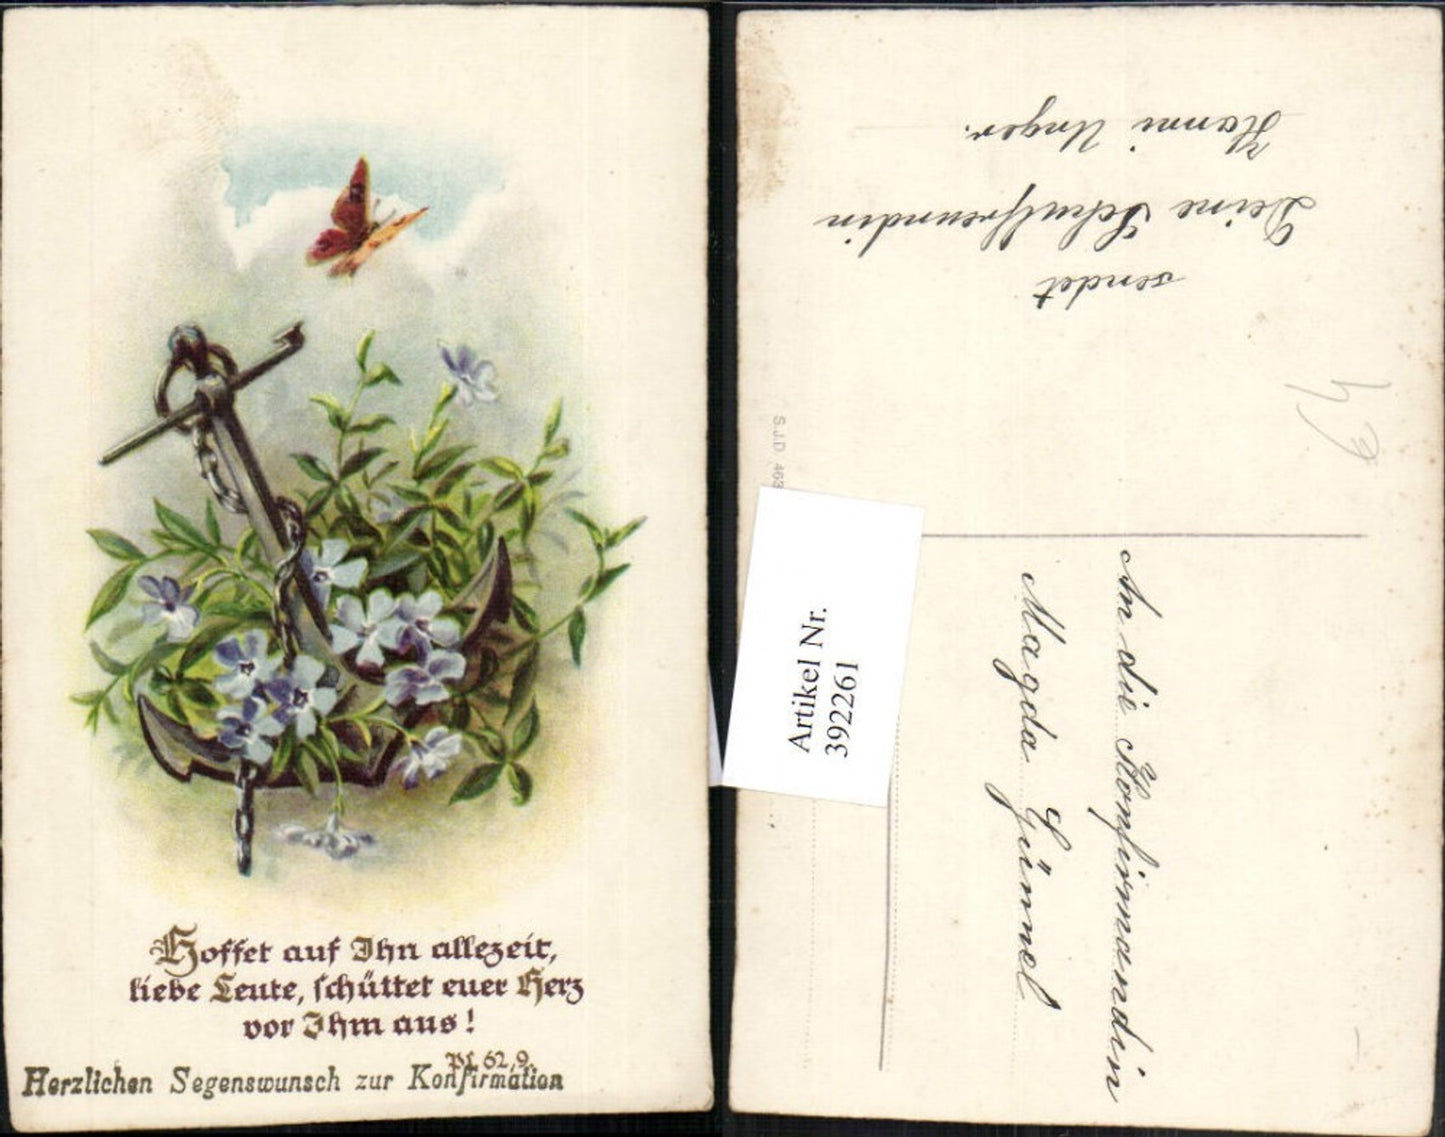 Hoffet auf Ihn allezeit,
liebe Leute, schüttet euer Herz
vor Ihm aus!
Ps. 62, 9.
Herzlichen Segenswunsch zur Konfirmation
An die Konfirmandin
Magda Gümmel
sendet
Deine Schulfreundin
Hanni Unger.
S.J.D. 463
Artikel Nr.
3922261